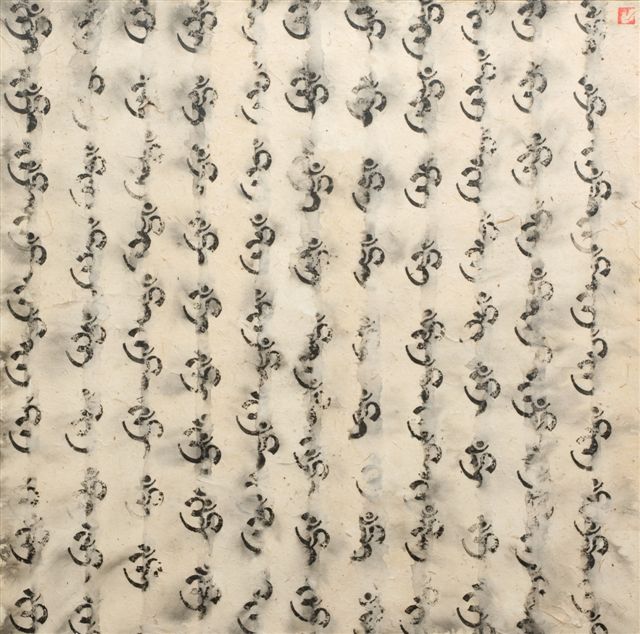 ॐ ॐ ॐ ॐ ॐ ॐ ॐ ॐ ॐ ॐ ॐ
ॐ ॐ ॐ ॐ ॐ ॐ ॐ ॐ ॐ ॐ ॐ
ॐ ॐ ॐ ॐ ॐ ॐ ॐ ॐ ॐ ॐ ॐ
ॐ ॐ ॐ ॐ ॐ ॐ ॐ ॐ ॐ ॐ ॐ
ॐ ॐ ॐ ॐ ॐ ॐ ॐ ॐ ॐ ॐ ॐ
ॐ ॐ ॐ ॐ ॐ ॐ ॐ ॐ ॐ ॐ ॐ
ॐ ॐ ॐ ॐ ॐ ॐ ॐ ॐ ॐ ॐ ॐ
ॐ ॐ ॐ ॐ ॐ ॐ ॐ ॐ ॐ ॐ ॐ
ॐ ॐ ॐ ॐ ॐ ॐ ॐ ॐ ॐ ॐ ॐ